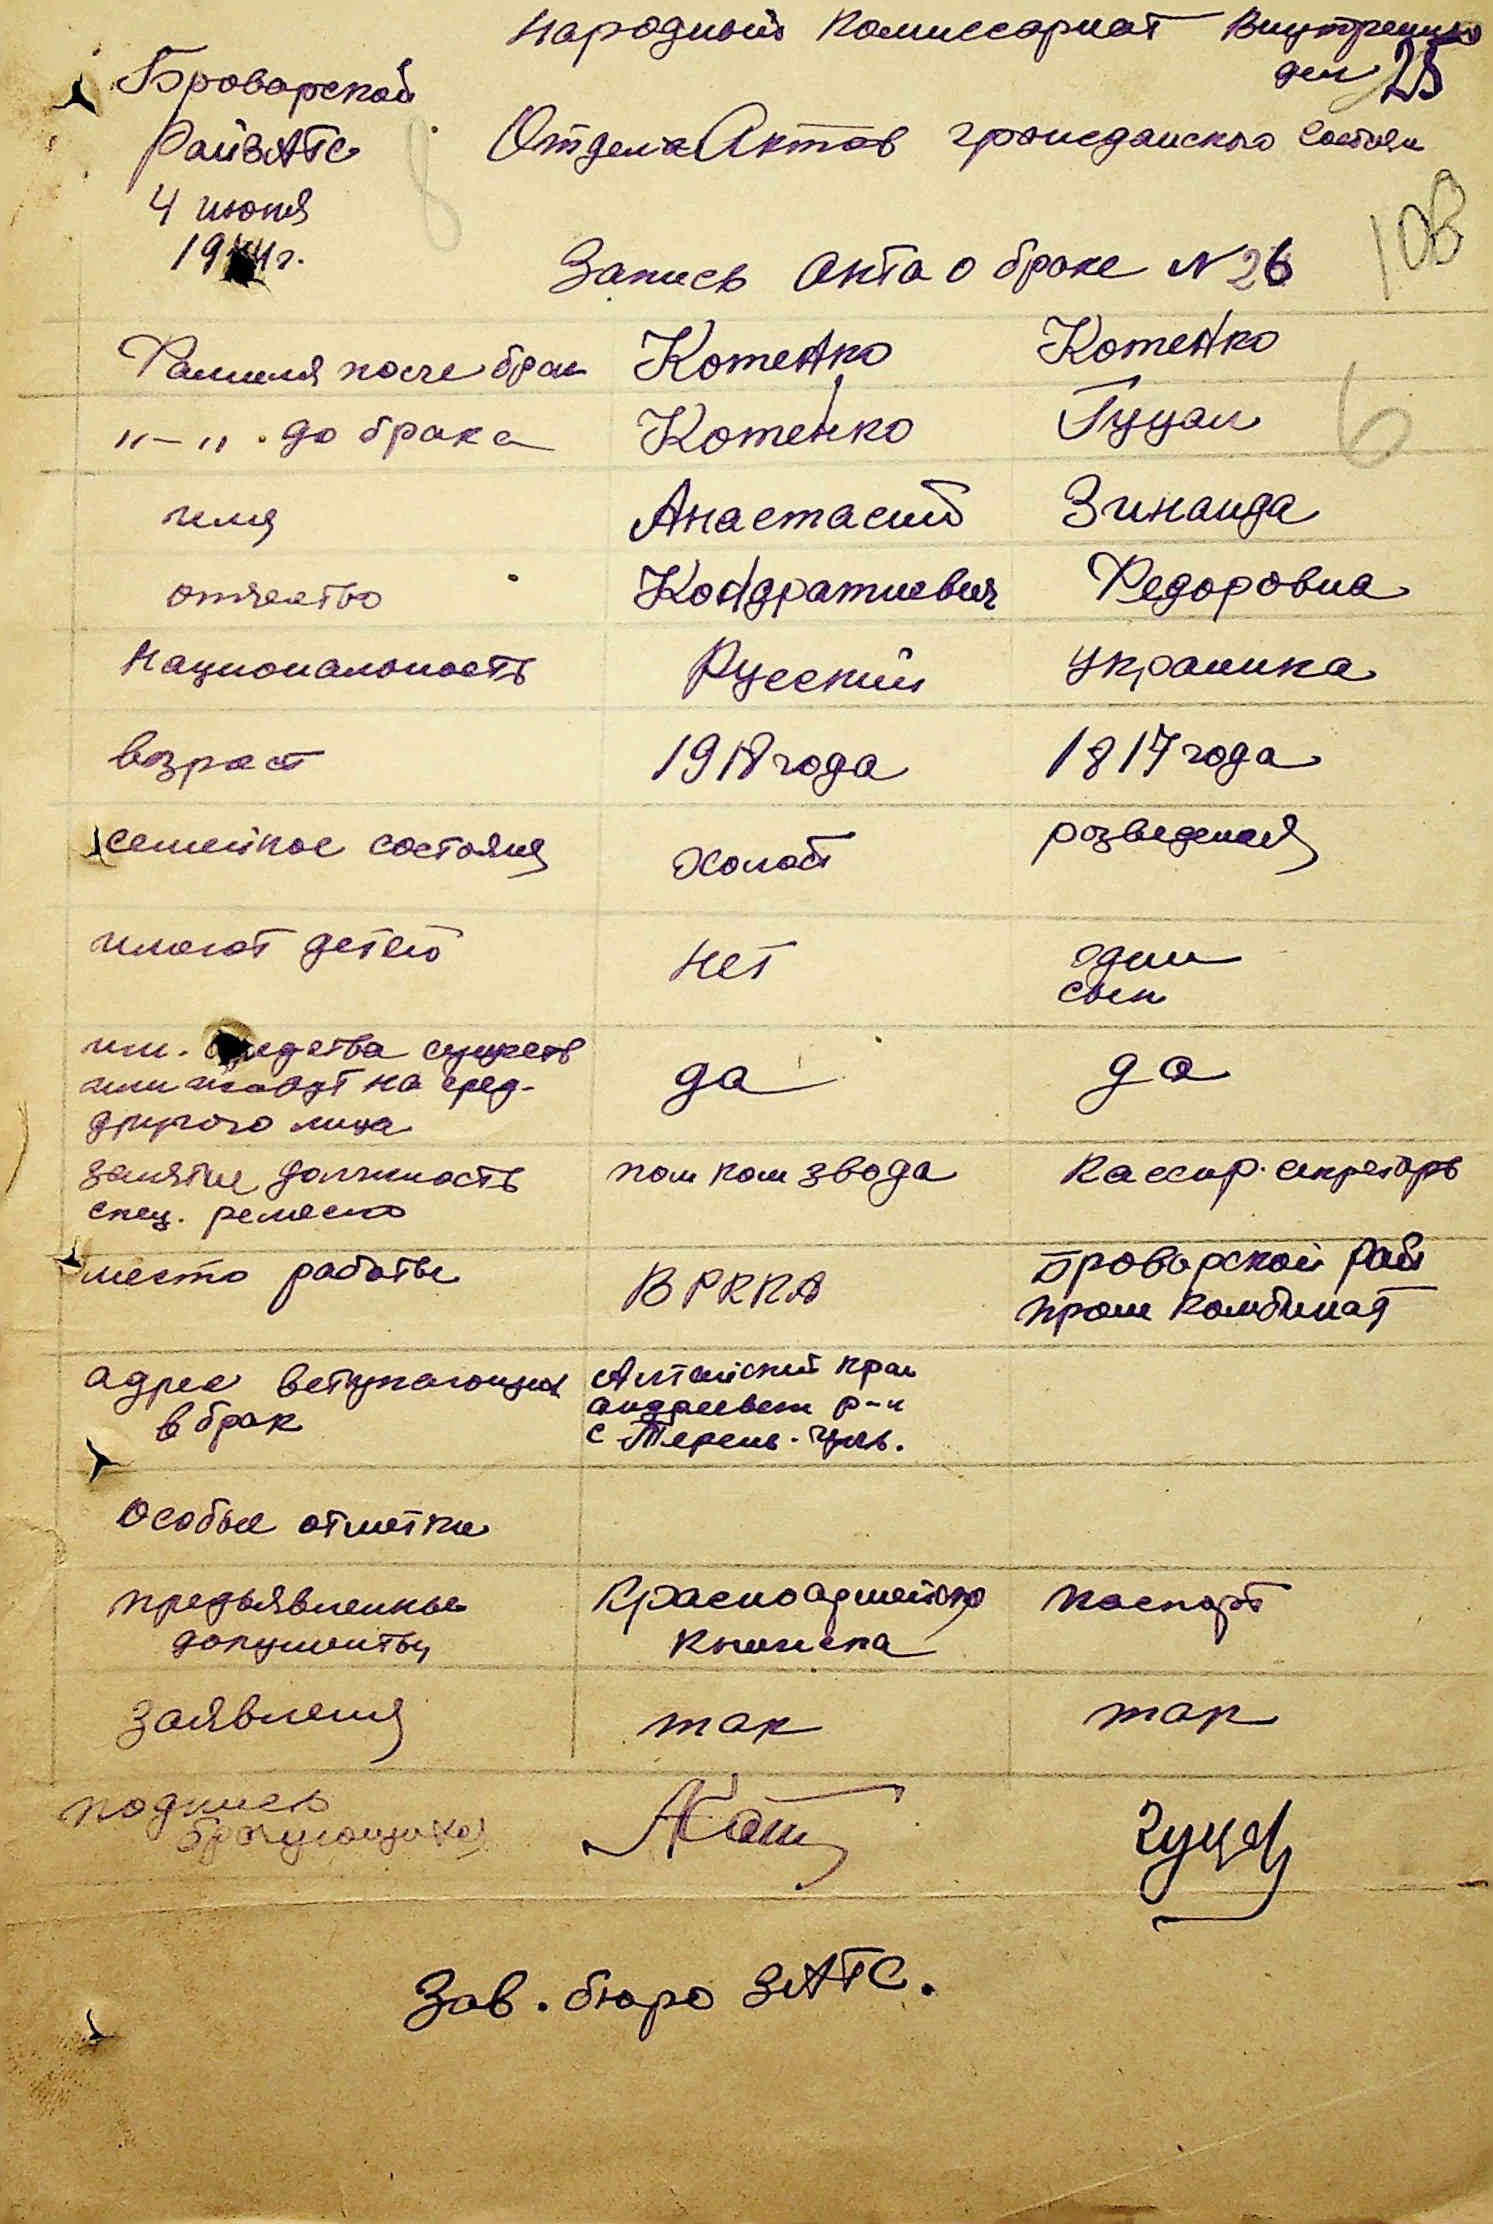 Народный Комиссариат Внутрених
дел 25
Броварской
РайЗАГС
Отдела Актов гражданского состоян
4 июня
1944 г.
8
108
Запись Акта о браке N 26
Фамилия после брак Котенко Котенко
"-" . до брака Котенко Гуцал
6
имя Анастасий Зинаида
отчество Кондратиевич Федоровна
Национальность Русский украинка
возраст 1918 года 1817 года
семейное состояния холост розведеная
имеют детей нет один
сын
им. средства существ да да
или живут на сред-
другого лица
занятие должность пом ком звода Кассир-секретарь
спец. ремесло
место работы В РККА Броварской рай
пром Комбинат
адрес вступающих Алтайский край
в брак андреевск р-н
с
Особые отметки
предъявленные Красноармейская паспорт
документы книжка
заявления так так
подпись
брачующихся
Зав. бюро ЗАГС.